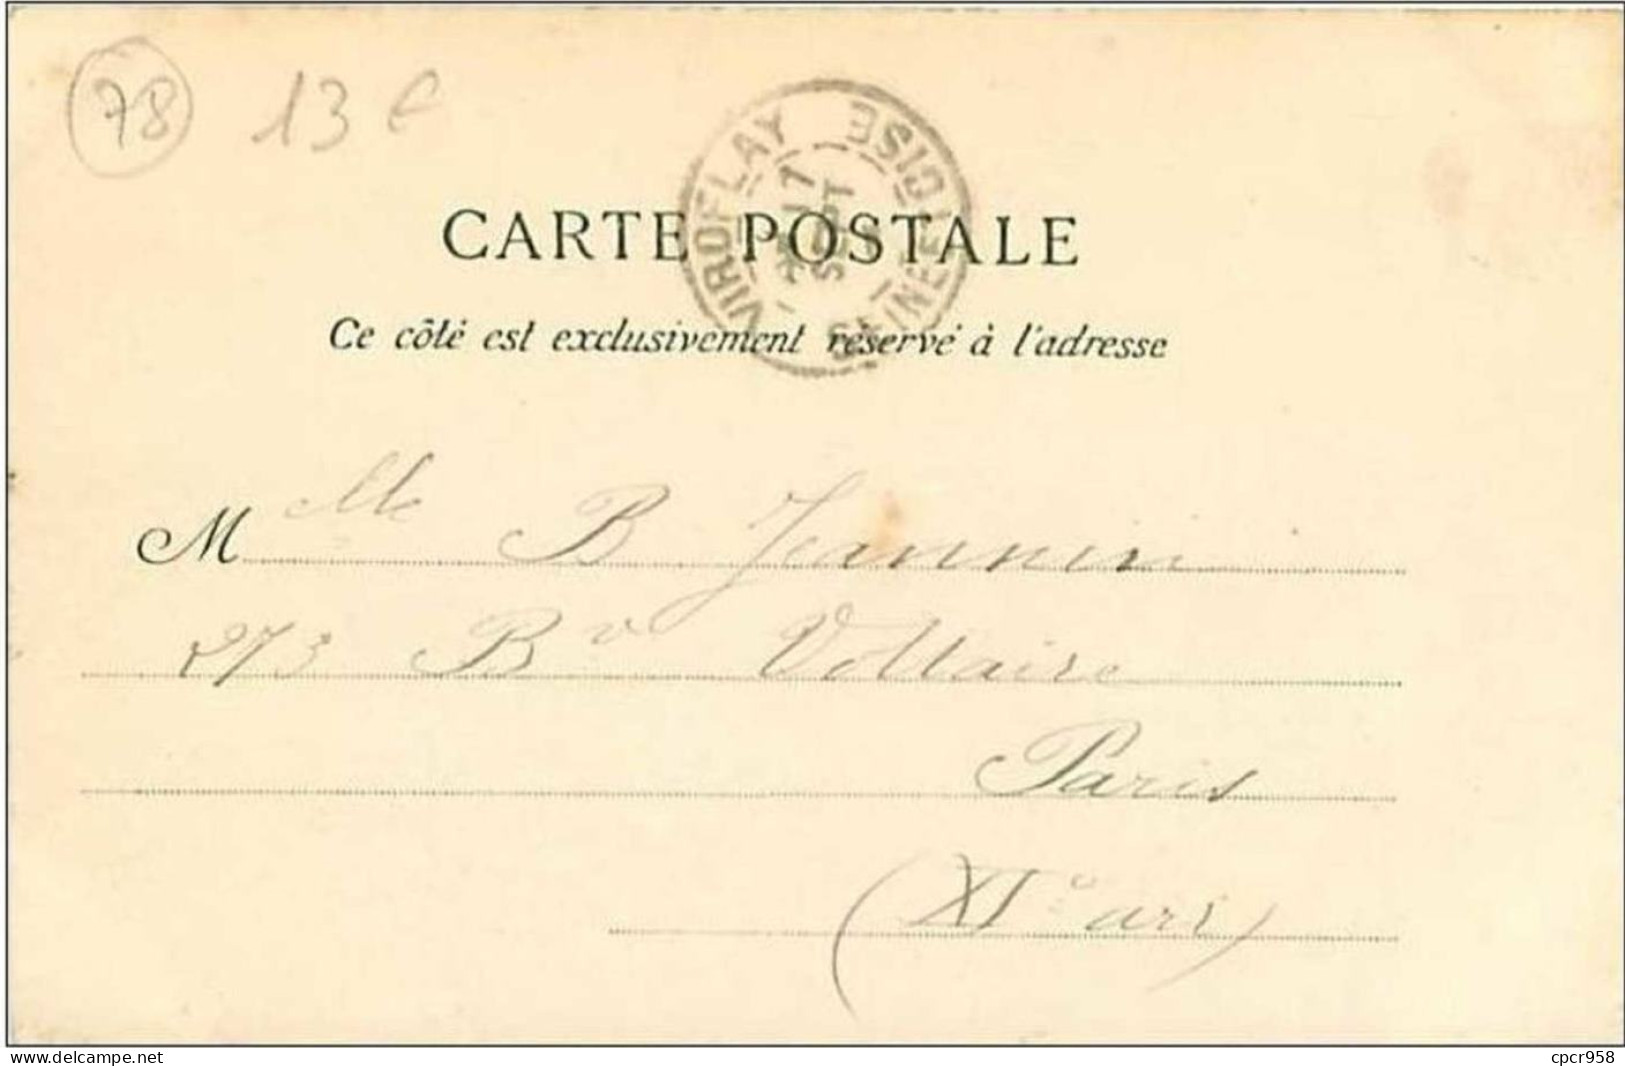 78 13 €
CARTE POSTALE
VIROFLAY
17
SEPT
SEINE-ET-OISE
Ce côté est exclusivement réservé à l'adresse
Mlle B Jeannin
273 Bv Voltaire
Paris
(XIe arr)
www.delcampe.net
cpcr958